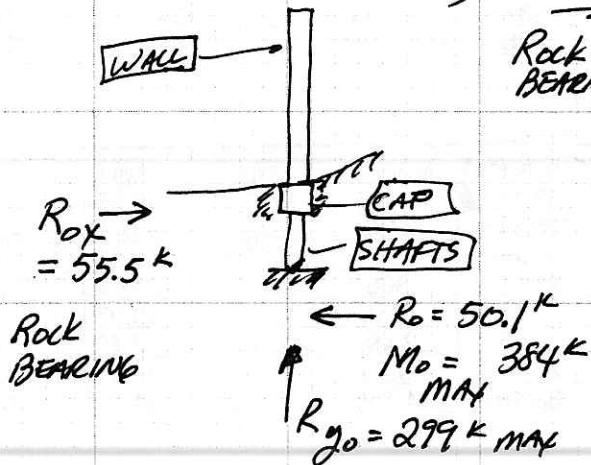 WALL
Rock
BEAR
CAP
Rox →
= 55.5 K
SHAFTS
Rock
BEARING
← Ro = 50.1 K
Mo = 384 K
MAX
Ryo = 299 K MAX